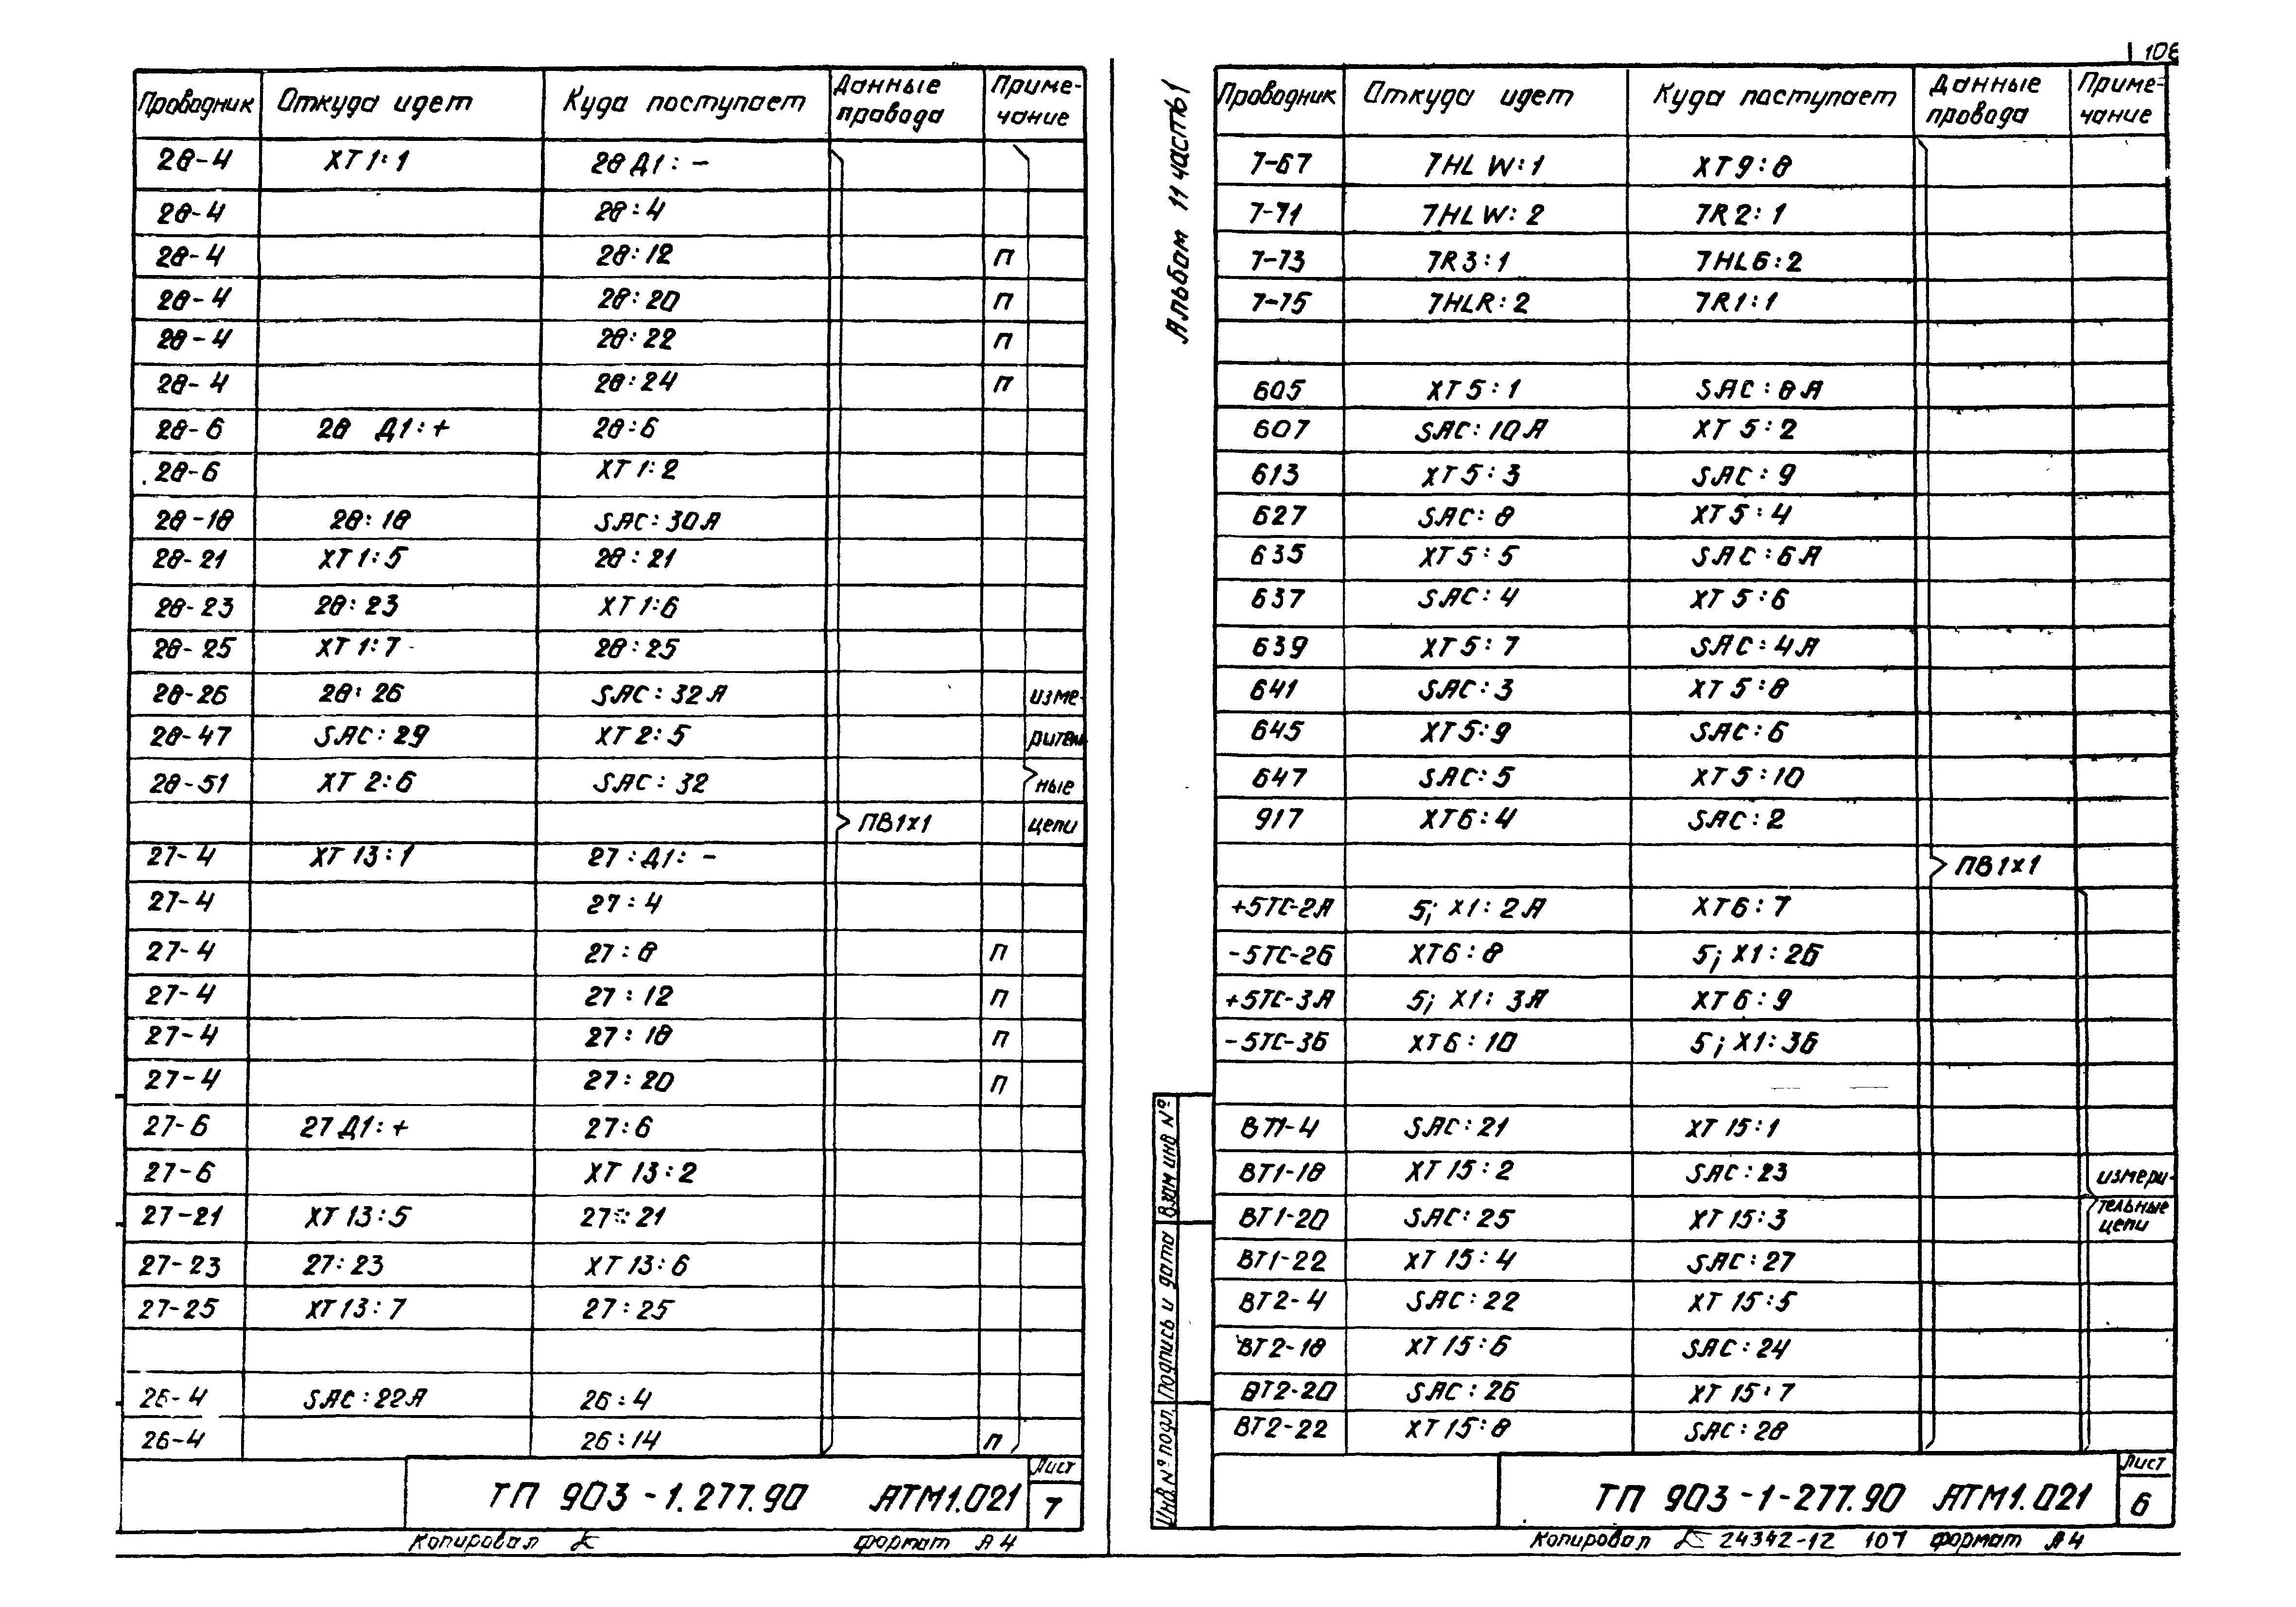 Проводник Откуда идет Куда поступает Данные провода Приме-чание
28-4 XT1:1 28Д1:-
28-4 28:4
28-4 28:12 П
28-4 28:20 П
28-4 28:22 П
28-4 28:24 П
28-6 28 Д1:+ 28:6
28-6 XT1:2
28-18 28:18 SAC:30A
28-21 XT1:5 28:21
28-23 28:23 XT1:6
28-25 XT1:7 28:25
28-26 28:26 SAC:32A изме-
28-47 SAC:29 XT2:5 ритель
28-51 XT2:6 SAC:32 ные
ПВ1х1 цепи
27-4 XT13:1 27:Д1:-
27-4 27:4
27-4 27:8 П
27-4 27:12 П
27-4 27:18 П
27-4 27:20 П
27-6 27Д1:+ 27:6
27-6 XT13:2
27-21 XT13:5 27:21
27-23 27:23 XT13:6
27-25 XT13:7 27:25
26-4 SAC:22A 26:4
26-4 26:14 П
ТП 903-1.277.90 АТМ1.021 Лист 7
Копировал Формат А4
Альбом 11 часть1
Проводник Откуда идет Куда поступает Данные провода Приме-чание
7-67 7HLW:1 XT9:8
7-71 7HLW:2 7R2:1
7-73 7R3:1 7HL6:2
7-75 7HLR:2 7R1:1
605 XT5:1 SAC:8A
607 SAC:10A XT5:2
613 XT5:3 SAC:9
627 SAC:8 XT5:4
635 XT5:5 SAC:6A
637 SAC:4 XT5:6
639 XT5:7 SAC:4A
641 SAC:3 XT5:8
645 XT5:9 SAC:6
647 SAC:5 XT5:10
917 XT6:4 SAC:2
ПВ1х1
+5TC-2A 5; X1:2A XT6:7
-5TC-2Б XT6:8 5; X1:2Б
+5TC-3A 5; X1:3A XT6:9
-5TC-3Б XT6:10 5; X1:3Б
BT1-4 SAC:21 XT15:1
BT1-18 XT15:2 SAC:23 измери-
BT1-20 SAC:25 XT15:3 тельные цепи
BT1-22 XT15:4 SAC:27
BT2-4 SAC:22 XT15:5
BT2-18 XT15:6 SAC:24
BT2-20 SAC:26 XT15:7
BT2-22 XT15:8 SAC:28
Инв.№ подл. Подпись и дата Взам инв №
ТП 903-1-277.90 АТМ1.021 Лист 6
Копировал 24342-12 107 Формат А4